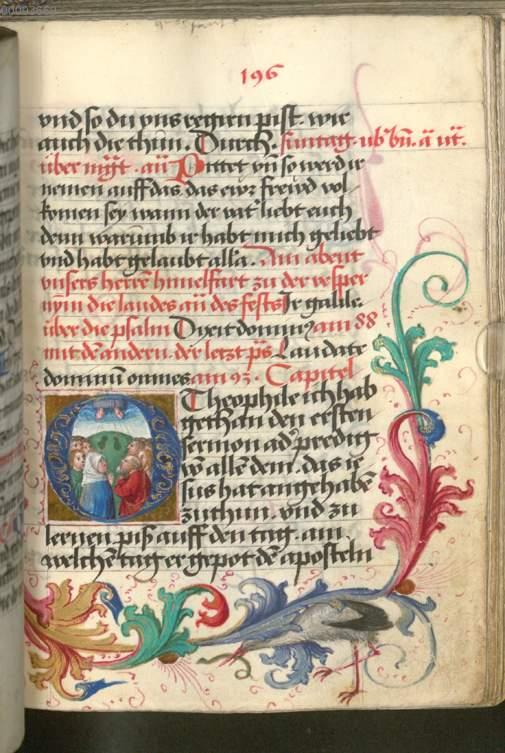 196
vnd so du vns regirn pist. wie
auch die thun. Durch. suntag.
über Pittet vn̄ so werd ir
nemen auff das. das ewr freiwd vol
komen sey wann der vat' liebt euch
denn warumb ir habt mich geliebt
vnd habt gelaubt all'a. Am abent
vnsers herrē himelfart zu der vesper
nym die laudes aū des fests Ir galile.
über die psalm Dixit dominꝰ am 88
mit dē andern. der letzt p̄s Laudate
dominū omnes am 93. Capitel
Theophile ich hab
gethan den ersten
sermon ad' predig
vō allē dem. das ie
sus hat angehabē
zuthun. vnd zu
lernen piß auff den tag. am
welchē tag er gepot dē aposteln